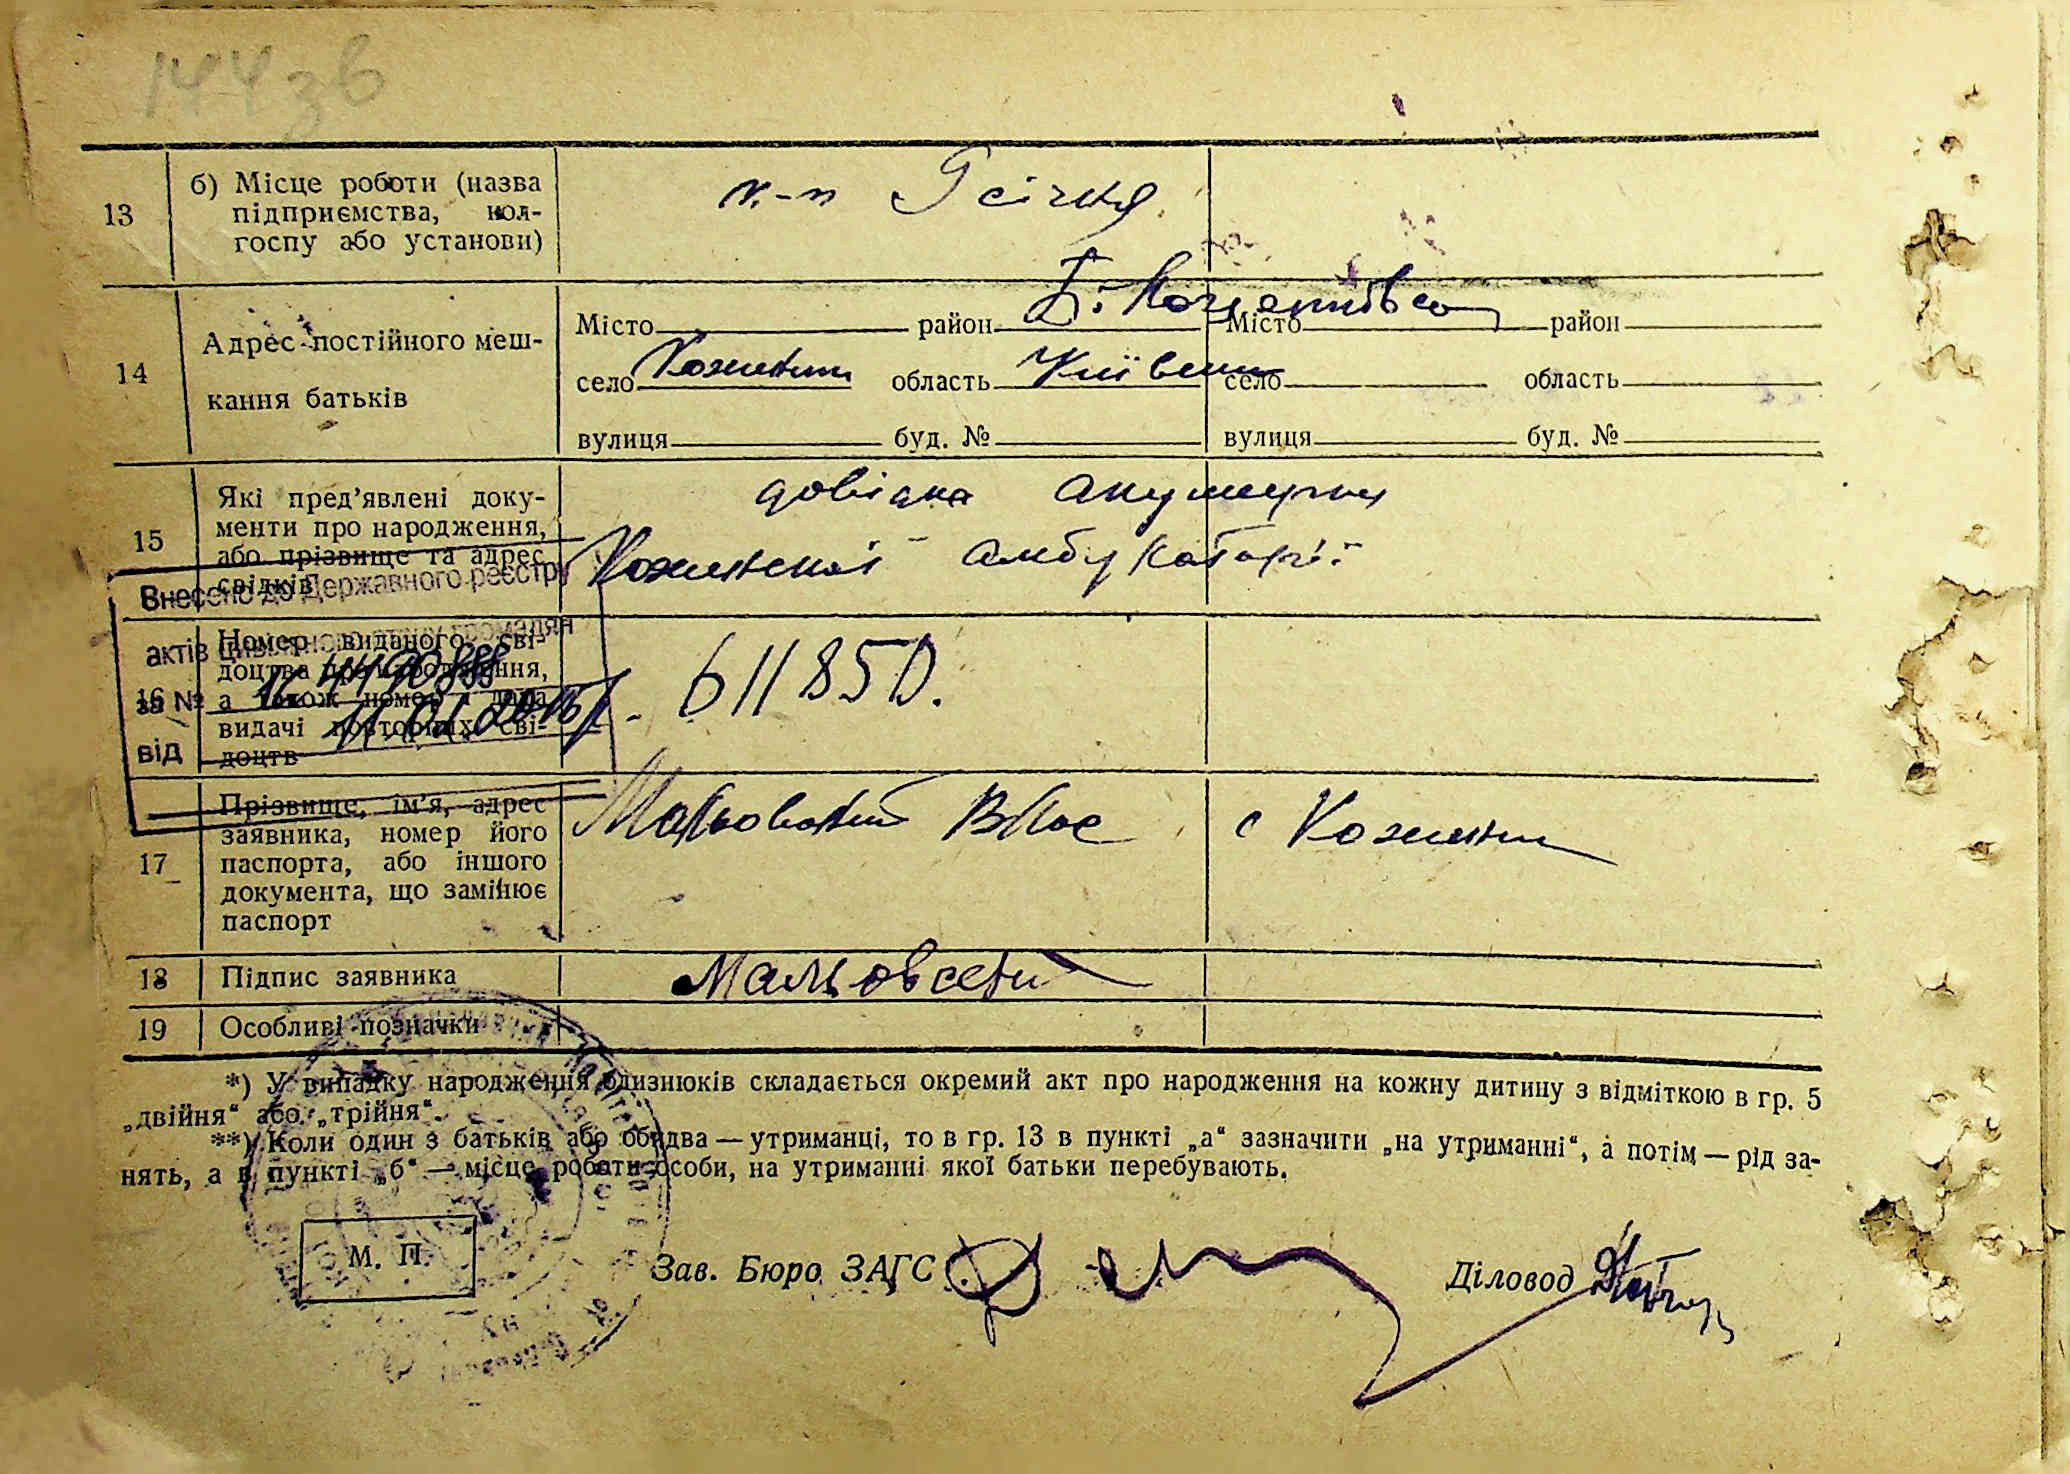 144 зв
13
б) Місце роботи (назва
підприємства, кол-
госпу або установи)
к.-п Усічня
14
Адрес постійного меш-
кання батьків
Місто район Місто район
село Кожанки область Київськ село область
вулиця буд. № вулиця буд. №
15
Які пред’явлені доку-
менти про народження,
або прізвище та адрес
свідків
довідка акушерки
Кожанської амбулаторії
Внесено до Державного реєстру
актів цивільного стану громадян
за №
від 11.01.2016 р.
16
Номер виданого сві-
доцтва про народження,
а також номер і дата
видачі повторних сві-
доцтв
611850.
17
Прізвище, ім’я, адрес
заявника, номер його
паспорта, або іншого
документа, що замінює
паспорт
Мальований Влас с Кожанки
18 Підпис заявника
19 Особливі позначки
*) У випадку народження близнюків складається окремий акт про народження на кожну дитину з відміткою в гр. 5
„двійня“ або „трійня“.
**) Коли один з батьків або обидва — утриманці, то в гр. 13 в пункті „а“ зазначити „на утриманні“, а потім — рід за-
нять, а в пункті „б“ — місце роботи особи, на утриманні якої батьки перебувають.
М. П.
Зав. Бюро ЗАГС
Діловод